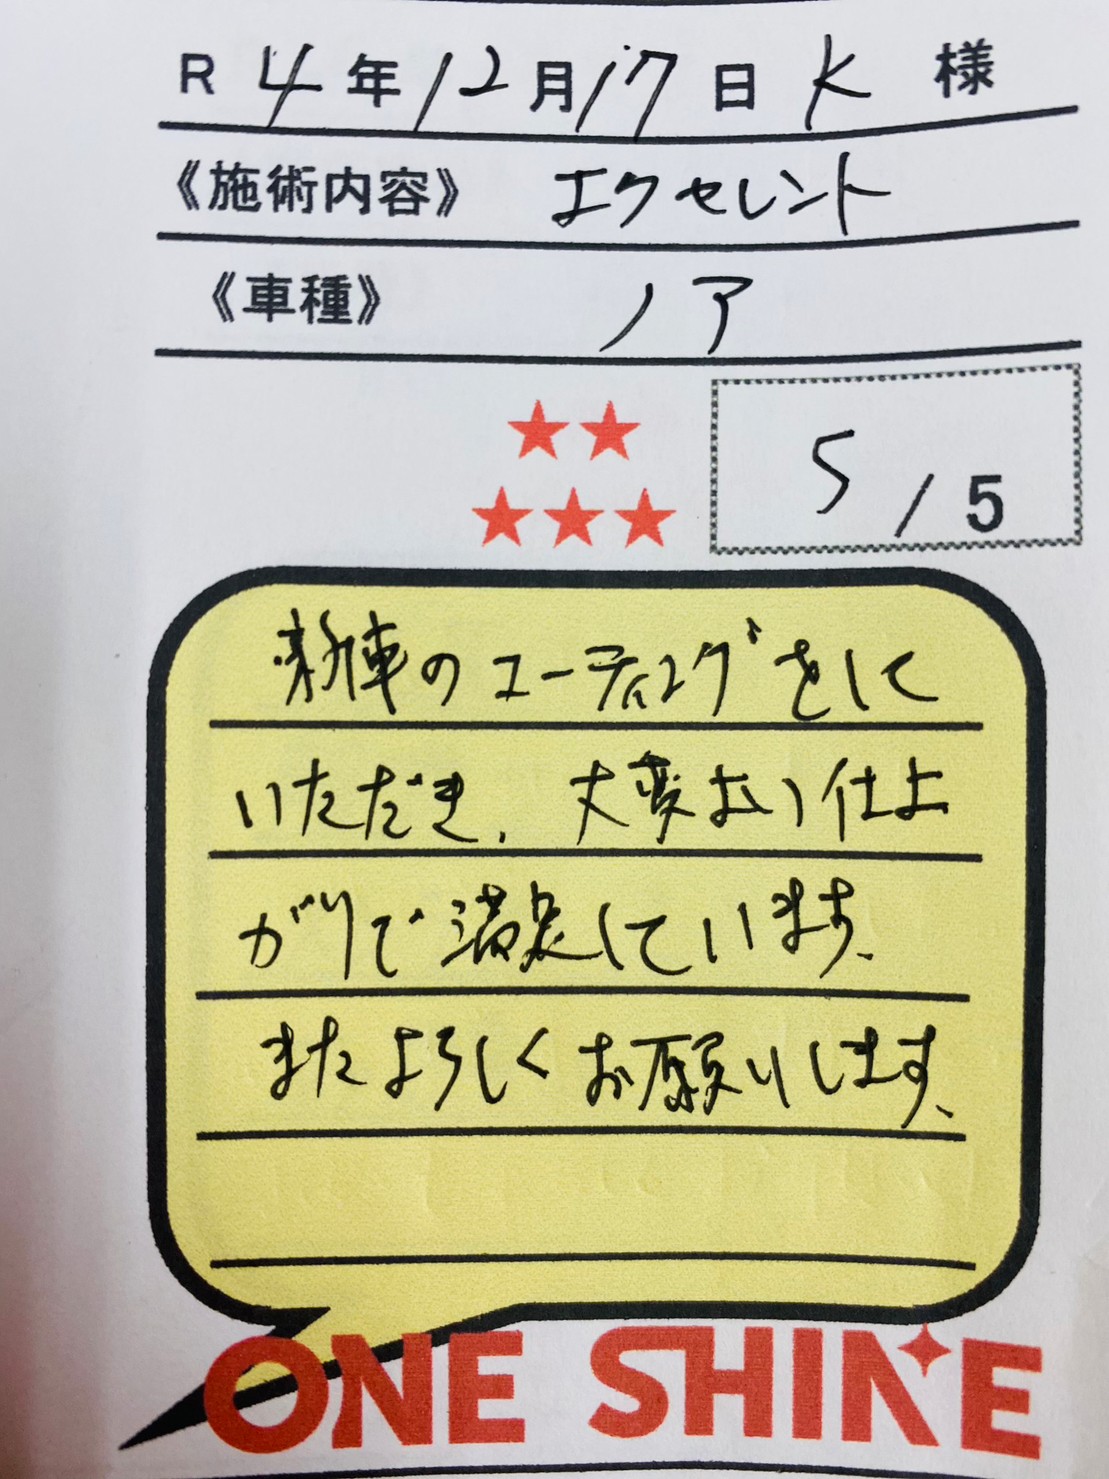 R 4年12月17日 K 様
《施術内容》 エクセレント
《車種》 ノア
5/5
新車のコーティングをして
いただき、大変よい仕上
がりで満足しています、
またよろしくお願いします、
ONE SHINE